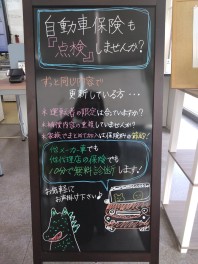 自動車保険も
『点検』しませんか?
ずっと同じ内容で
更新している方…
運転者の限定は合っていますか?
補償内容の重複していませんか?
家族でまとめて加入は保険料の節約!
他メーカー車でも
他代理店の保険でも
10分で無料診断します!
お気軽に
お声掛け下さい♪